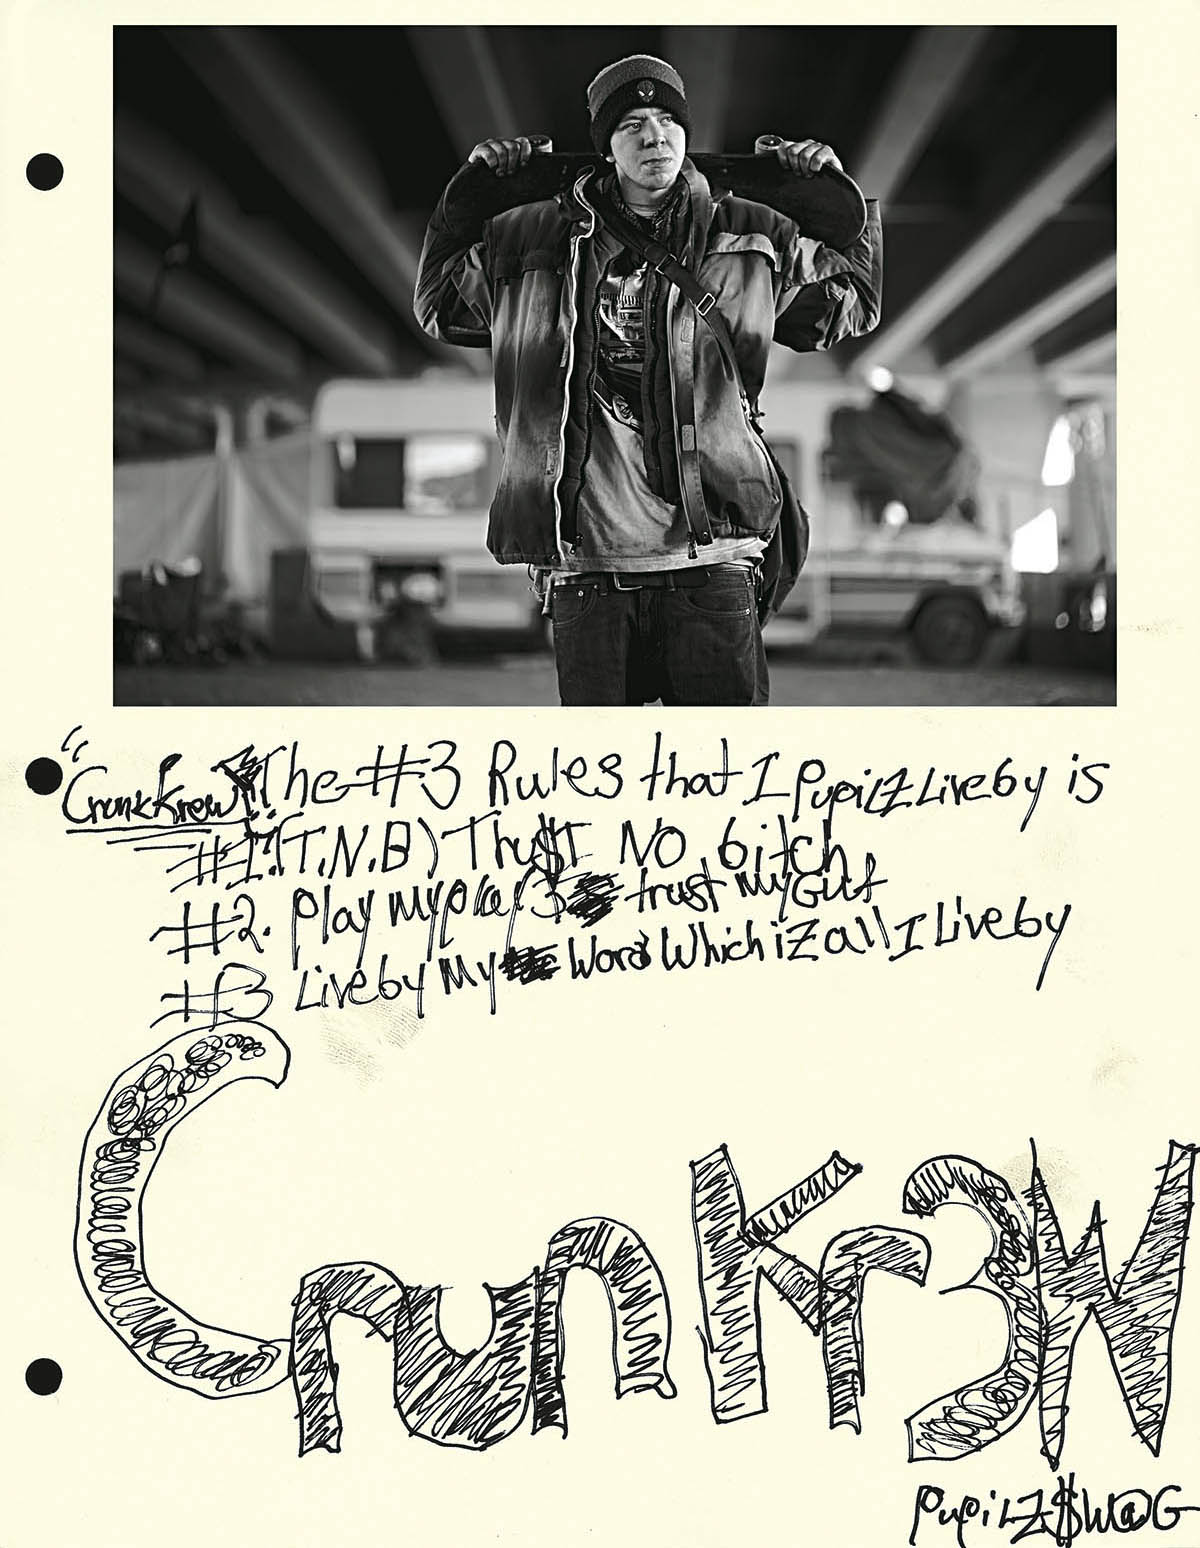 "CrunkKrew!! The #3 Rules that I PupiLZ Live by is
#1. (T.N.B) Thu$T NO bitch,
#2. Play My Play3 trust My Gut
#3 Live by My Word Which iZ all I Live by
Crunkr3W
PupiLZ$W@G